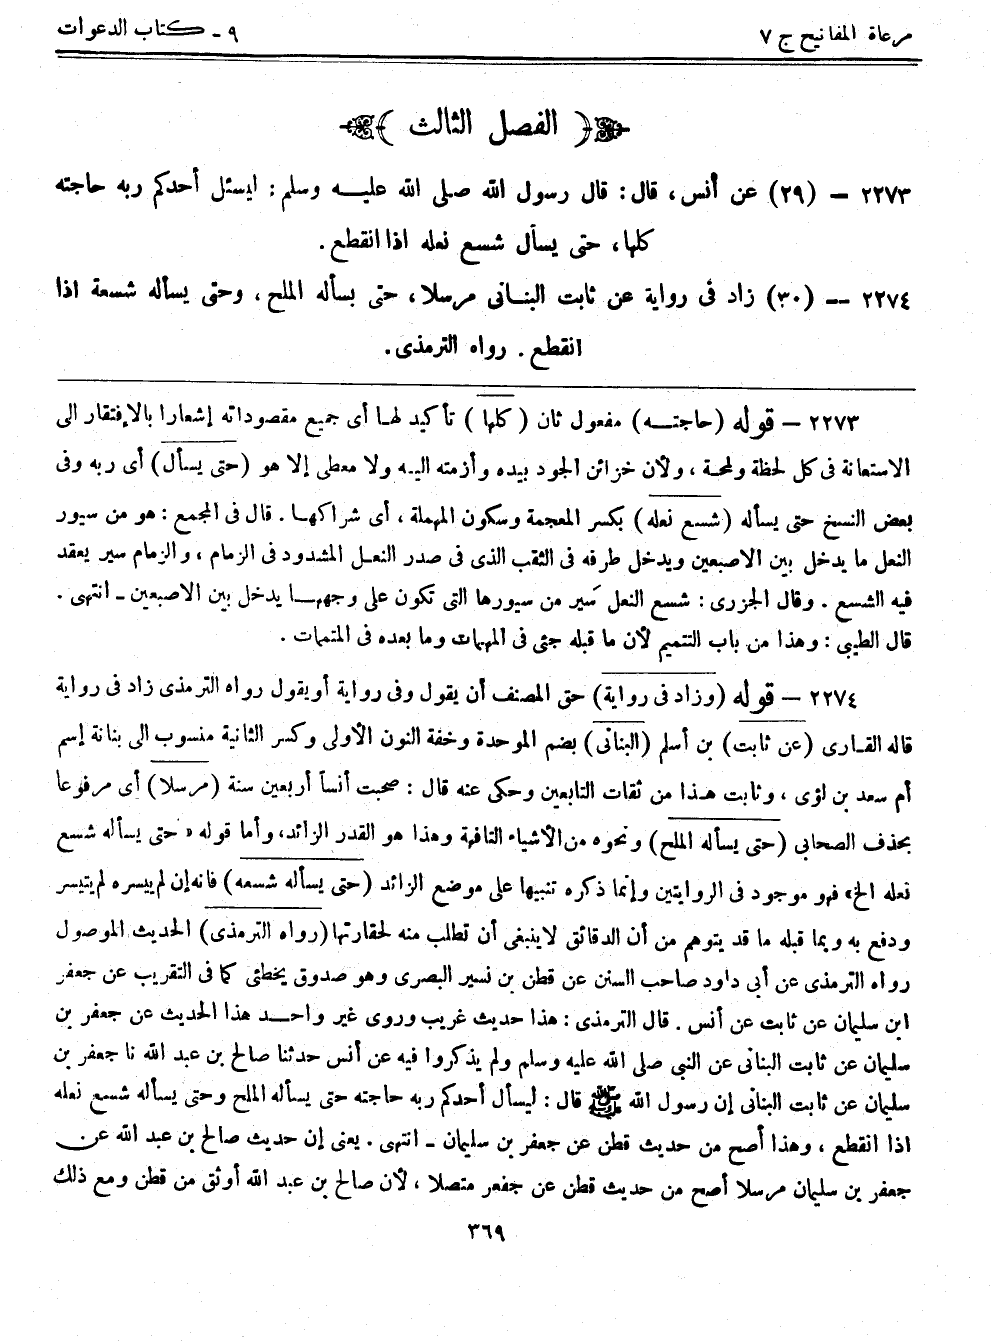 مرعاة المفاتيح ج ٧
٩ ـ كتاب الدعوات
﴿ الفصل الثالث ﴾
٢٢٧٣ – (٢٩) عن أنس، قال: قال رسول الله صلى الله عليه وسلم: ليسئل أحدكم ربه حاجته
كلها، حتى يسأل شسع نعله اذا انقطع.
٢٢٧٤ – (٣٠) زاد فى رواية عن ثابت البنانى مرسلا، حتى يسأله الملح، وحتى يسأله شسعة اذا
انقطع. رواه الترمذى.
٢٢٧٣ – قوله (حاجته) مفعول ثان (كلها) تأكيد لها أى جميع مقصوداته إشعارا بالإفتقار الى
الاستعانة فى كل لحظة ولمحة، ولأن خزائن الجود بيده وأزمته اليه ولا معطى إلا هو (حتى يسأل) أى ربه وفى
بعض النسخ حتى يسأله (شسع نعله) بكسر المعجمة وسكون المهملة، أى شراكها. قال فى المجمع: هو من سيور
النعل ما يدخل بين الاصبعين ويدخل طرفه فى الثقب الذى فى صدر النعل المشدود فى الزمام، والزمام سير يعقد
فيه الشسع. وقال الجزرى: شسع النعل سَير من سيورها التى تكون على وجهها يدخل بين الاصبعين ـ انتهى.
قال الطيبى: وهذا من باب التتميم لأن ما قبله جئى فى المهمات وما بعده فى المتممات.
٢٢٧٤ – قوله (وزاد فى رواية) حق المصنف أن يقول وفى رواية أو يقول رواه الترمذى زاد فى رواية
قاله القارى (عن ثابت) بن أسلم (البنانى) بضم الموحدة وخفة النون الأولى وكسر الثانية منسوب الى بنانة إسم
أم سعد بن لؤى، وثابت هذا من ثقات التابعين وحكى عنه قال: صحبت أنساً أربعين سنة (مرسلا) أى مرفوعا
بحذف الصحابى (حتى يسأله الملح) ونحوه من الأشياء التافهة وهذا هو القدر الزائد، وأما قوله «حتى يسأله شسع
نعله الخ» فهو موجود فى الروايتين وإنما ذكره تنبيها على موضع الزائد (حتى يسأله شسعه) فانه إن لم ييسره لم يتيسر
ودفع به وبما قبله ما قد يتوهم من أن الدقائق لا ينبغى أن تطلب منه لحقارتها (رواه الترمذى) الحديث الموصول
رواه الترمذى عن أبى داود صاحب السنن عن قطن بن نسير البصرى وهو صدوق يخطئى كما فى التقريب عن جعفر
ابن سليمان عن ثابت عن أنس. قال الترمذى: هذا حديث غريب وروى غير واحد هذا الحديث عن جعفر بن
سليمان عن ثابت البنانى عن النبى صلى الله عليه وسلم ولم يذكروا فيه عن أنس حدثنا صالح بن عبد الله نا جعفر بن
سليمان عن ثابت البنانى إن رسول الله ﷺ قال: ليسأل أحدكم ربه حاجته حتى يسأله الملح وحتى يسأله شسع نعله
اذا انقطع، وهذا أصح من حديث قطن عن جعفر بن سليمان ـ انتهى. يعنى إن حديث صالح بن عبد الله عن
جعفر بن سليمان مرسلا أصح من حديث قطن عن جفعر متصلا، لأن صالح بن عبد الله أوثق من قطن ومع ذلك
٣٦٩